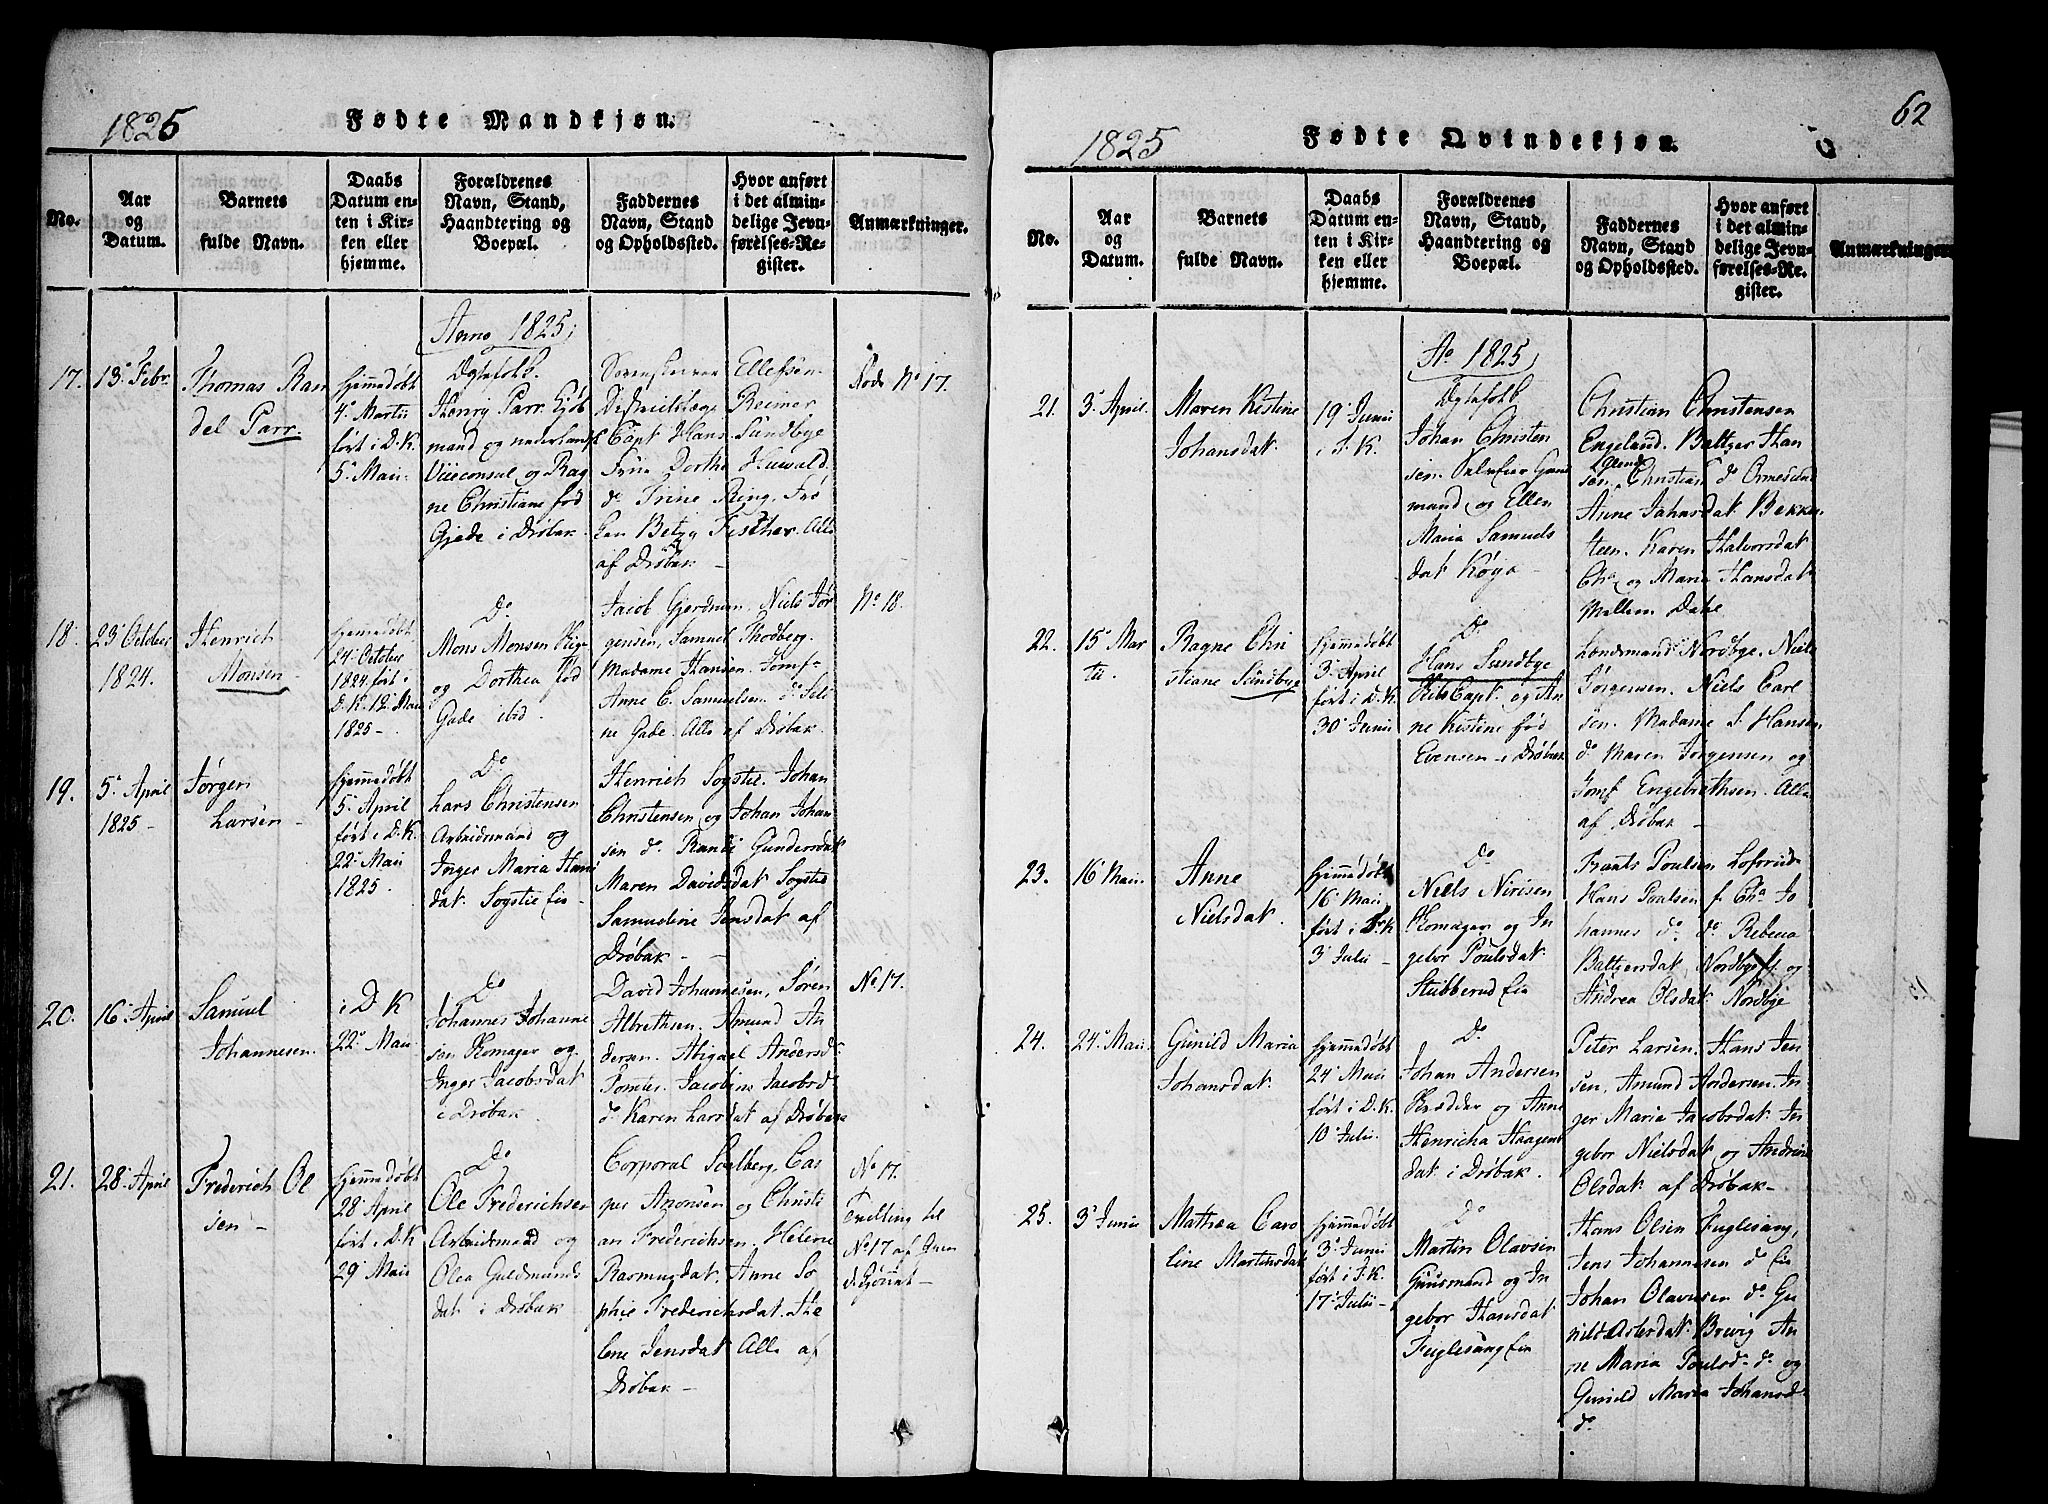 1825
Fødte Mandkjøn.
No.
Aar
og
Datum.
Barnets
fulde Navn.
Daabs
Datum en-
ten i Kir-
ken eller
hjemme.
Forældrenes
Navn, Stand,
Haandtering og
Boepæl.
Faddernes
Navn, Stand
og Opholdssted.
Hvor anført
i det almin-
delige Jevn-
førelses-Re-
gister.
Anmærkninger.
Anno 1825,
17.
13 Febr.
Thomas Ran
del Parr.
hjemmedøbt
4 Martii
ført i D. K.
5 Maii
Ægtefolk.
Henry Parr. Kjøb
mand og
Viiceconsul og Rag
ne Christiane fød
Gjede i Drøbak
Sorenskriver Ellefsen.
Districtslæge Reimer
Capt Hans Sundbye
Dorthe
do Trine Ring. Frø
ken Betzy Fischer. Alle
af Drøbak
No 17.
18.
23 October
1824.
Henrich
Monsen
hjemmedøbt
24 October
1824 ført i
D. K. 12 Maii
1825
Do
Mons Monsen
og Dorthea fød
Gade ibid.
Jacob Gjerdrum, Niels Jør
gensen, Samuel Thodberg.
Madame Hansen. Jomf
Anne C. Samuelsen. do
ne Gade. Alle af Drøbak
No 18.
19.
5 April
1825
Jørgen
Larsen
hjemmedøbt
5 April
ført i D. K.
22 Maii
1825
Do
Lars Christensen
Arbeidsmand og
Inger Maria Hans
dat. Sogstie Eie
Henrich Sogstie. Johan
Christensen og Johan Johan
sen do Randi Gundersdat
Maren Davidsdat Sogstie
Samueline Jensdat af
Drøbak
20.
16 April
Samuel
Johannesen
i D K
22 Maii
Do
Johannes Johanne
sen Skomager og
Inger Jacobsdat
i Drøbak
David Johannesen, Søren
Albrethsen. Amund An
dersen. Abigael Andersd.
Jacobine Jacobsd
do Karen Larsdat af Drøbak
No 17.
21.
28 April
Frederich Ol
sen
hjemmedøbt
28 April
ført i D. K
29 Maii
Do
Ole Frederichsen
Arbeidsmand og
Olea Guldmunds
dat i Drøbak
Corporal Soelberg, Cas
per Aronsen og Christi
an Frederichsen. Helene
Rasmusdat, Anne So
phie Frederichsdat. He
lene Jensdat Alle af
Drøbak
No 17.
Tvilling til
No 17 af
1825
Fødte Qvindekjøn.
62
No.
Aar
og
Datum.
Barnets
fulde Navn.
Daabs
Datum en-
ten i Kir-
ken eller
hjemme.
Forældrenes
Navn, Stand,
Haandtering og
Boepæl.
Faddernes
Navn, Stand
og Opholdssted.
Hvor anført
i det almin-
delige Jevn-
førelses-Re-
gister.
Anmærkninger.
Ao 1825,
21.
3 April.
Maren Kistine
Johansdat.
19 Junii
i F. K.
Ægtefolk
Johan Christen
sen.
mand og Ellen
Maria Samuels
dat Køyo
Christian Christensen
Engelund. Baltzer Han
sen, Christian do Ormesund
Anne Johnsdat Bekken
steen. Karen Halvorsdat
og Maria Hansdat
Mellem Dahl
22.
15 Mar
tii
Ragne Chri
stiane Sundbye
hjemmedøbt
3 April
ført i D. K
30 Junii
Do
Hans Sundbye
Capt. og An
ne Kistine fød
Evensen i Drøbak
Lensmand Nordbye. Niels
Jørgensen. Niels Carl
sen. Madame S. Hansen
do Maren Jørgensen og
Jomf Engebrethsen. Alle
af Drøbak
23.
16 Maii.
Anne
Nielsdat.
hjemmedøbt
16 Maii
ført i K
3 Julii
Do
Niels Nirisen
Skomager og In
gebor Poulsdat.
Stubberud Eie
Frants Poulsen
Hans Poulsen Jo
hannes do do
Baltzersdat, Nordbye og
Andrea Olsdat Nordbye
24.
24 Maii.
Gunild Maria
Johansdat.
hjemmedøbt
24 Maii
ført i D. K.
10 Julii.
Do
Johan Andersen
Skrædder og Anne
Henricha Haagens
dat i Drøbak.
Peter Larsen. Hans Jen
sen, Amund Andersen. In
ger Maria Jacobsdat. In
gebor Nielsdat og Andrine
Olsdat af Drøbak
25.
3 Junii
Mathea Caro
line Martinsdat
hjemmedøbt
3 Junii
ført i F. K.
17 Julii
Do
Martin Olavsen
Huusmand og In
gebor Hansdat
Fuglesang Eie
Hans Olsen Fuglesang,
Jens Johannesen do Eie
Johan Olavesen do Gu
nild Astersdat Brevig An
ne Maria Poulsd. do og
Gunild Maria Johansd
do